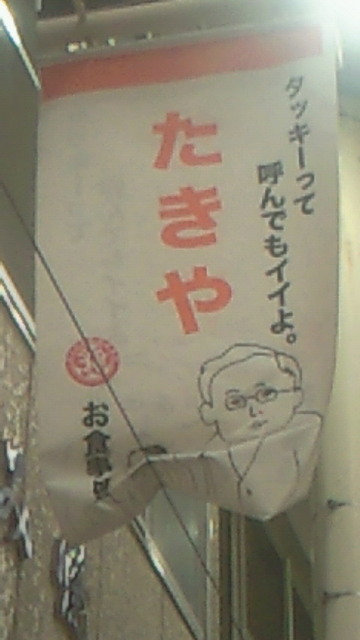 タッキーって
呼んでもイイよ。
たきや
お食事